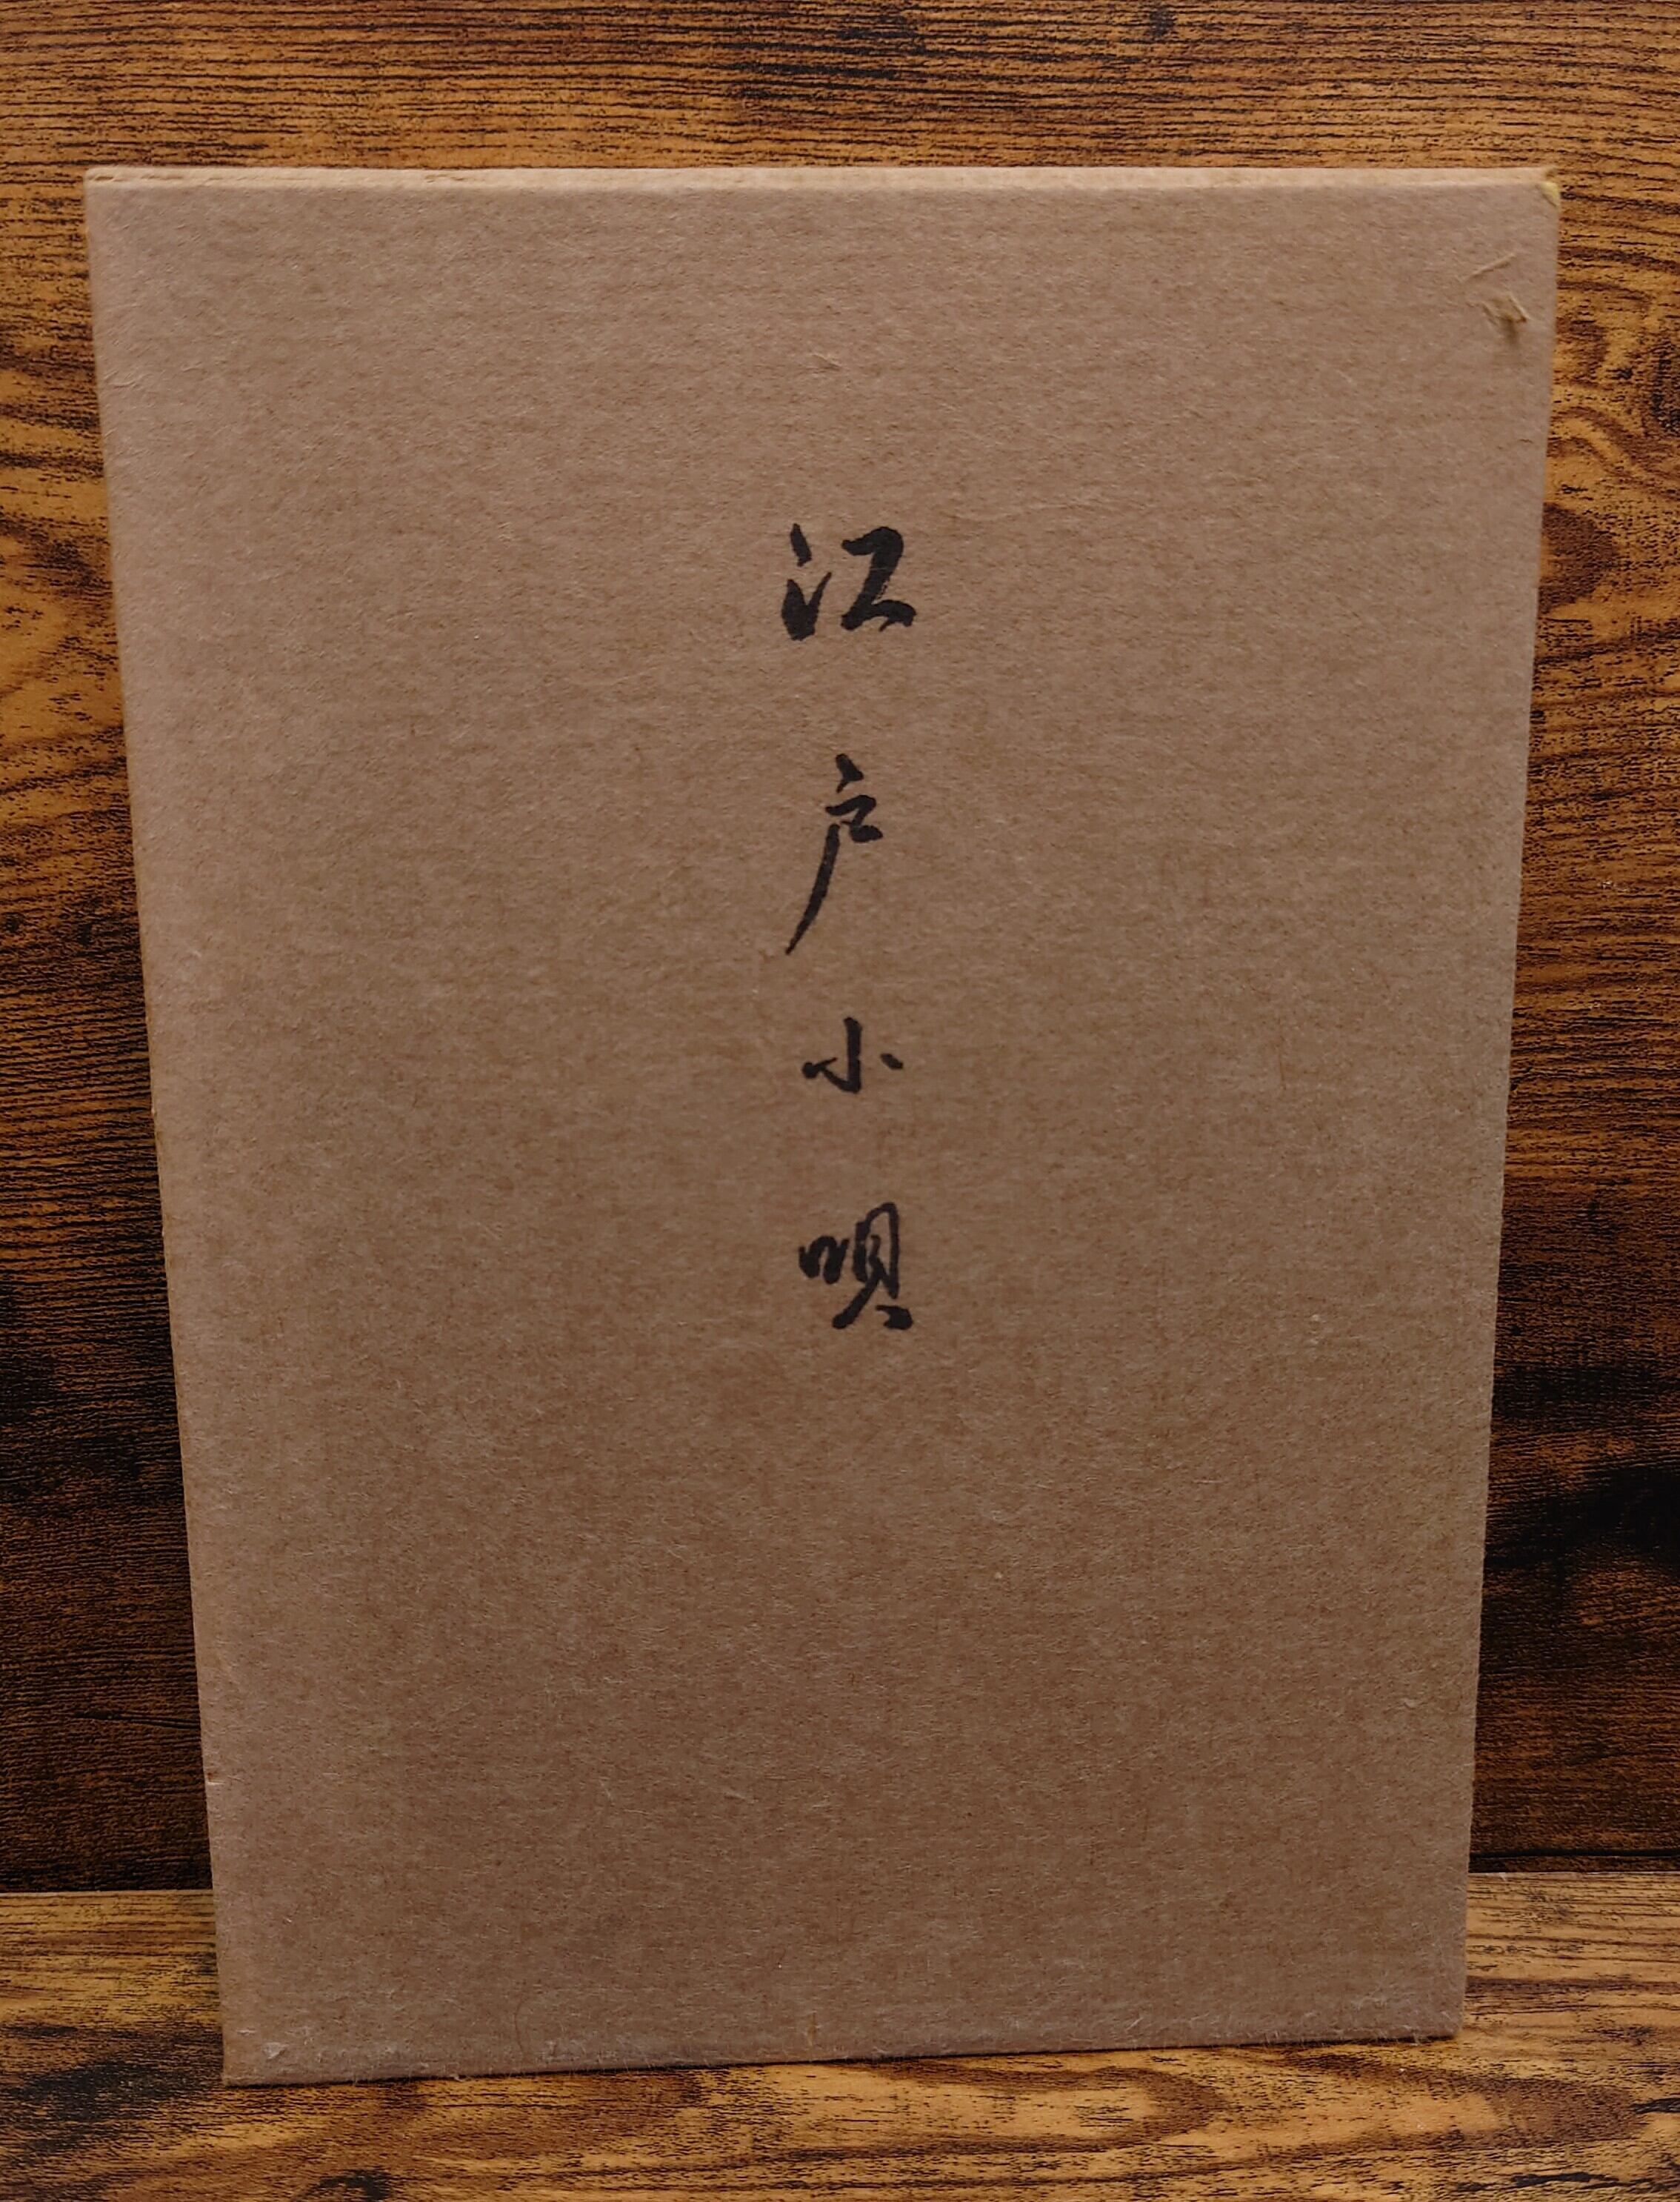 江戸小唄